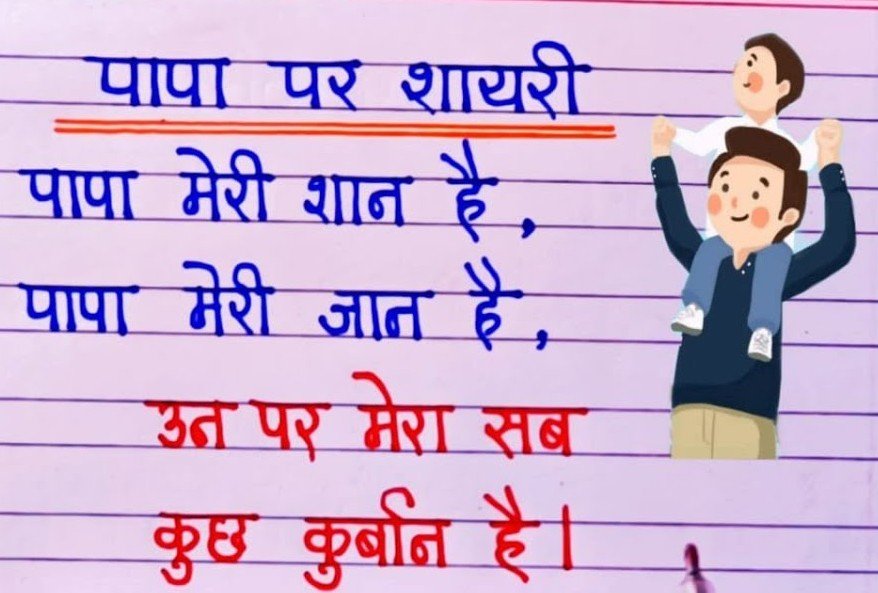 पापा पर शायरी
पापा मेरी शान है,
पापा मेरी जान है,
उन पर मेरा सब
कुछ कुर्बान है।